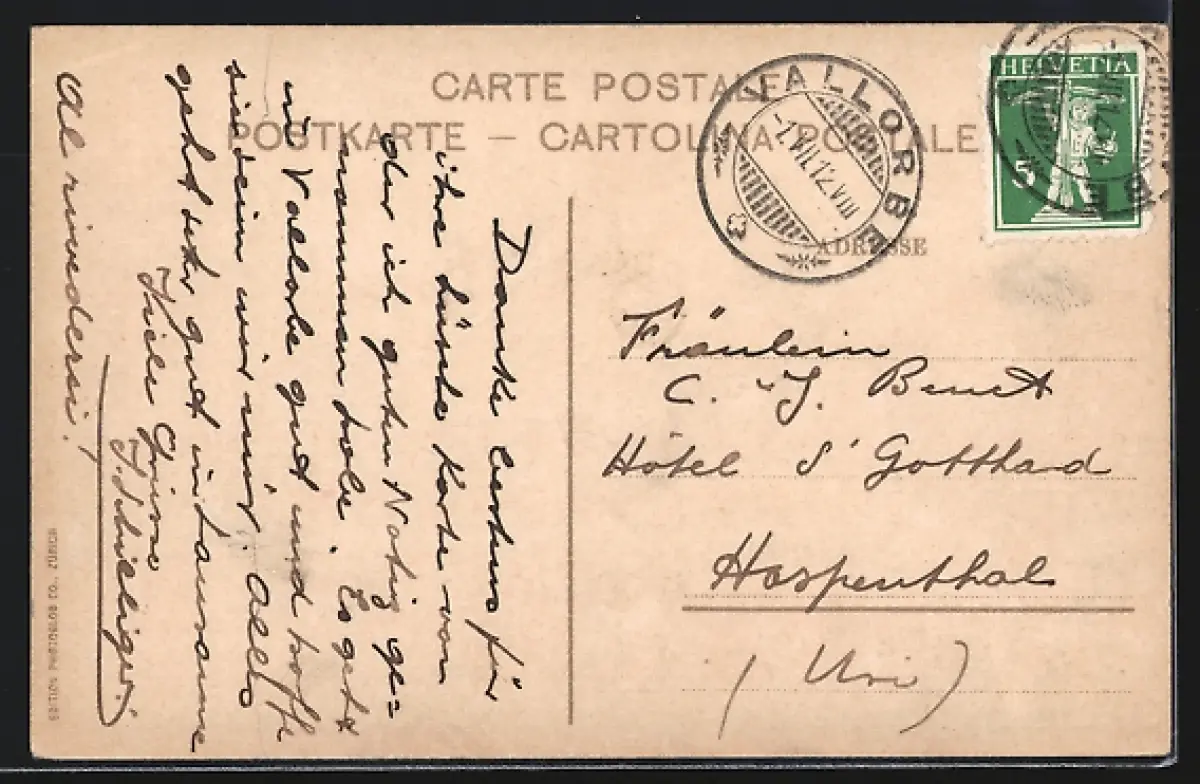 CARTE POSTALE
POSTKARTE — CARTOLINA POSTALE
VALLORBE
-1.VII.12.VIII
HELVETIA
5
ADRESSE
Fräulein
C. J. Benet
Hôtel St Gotthard
Hospenthal
(Uri)
Danke bestens für
ihre Karte von
der ich guten Notiz ge=
nommen habe. Es geht
in Vallorbe gut und hoffe
sie dem wir mir. Alles
geht sehr gut in Lausanne
Viele Grüsse
Al rivederci!
EDITION PHOTOGLOB CO., ZÜRICH